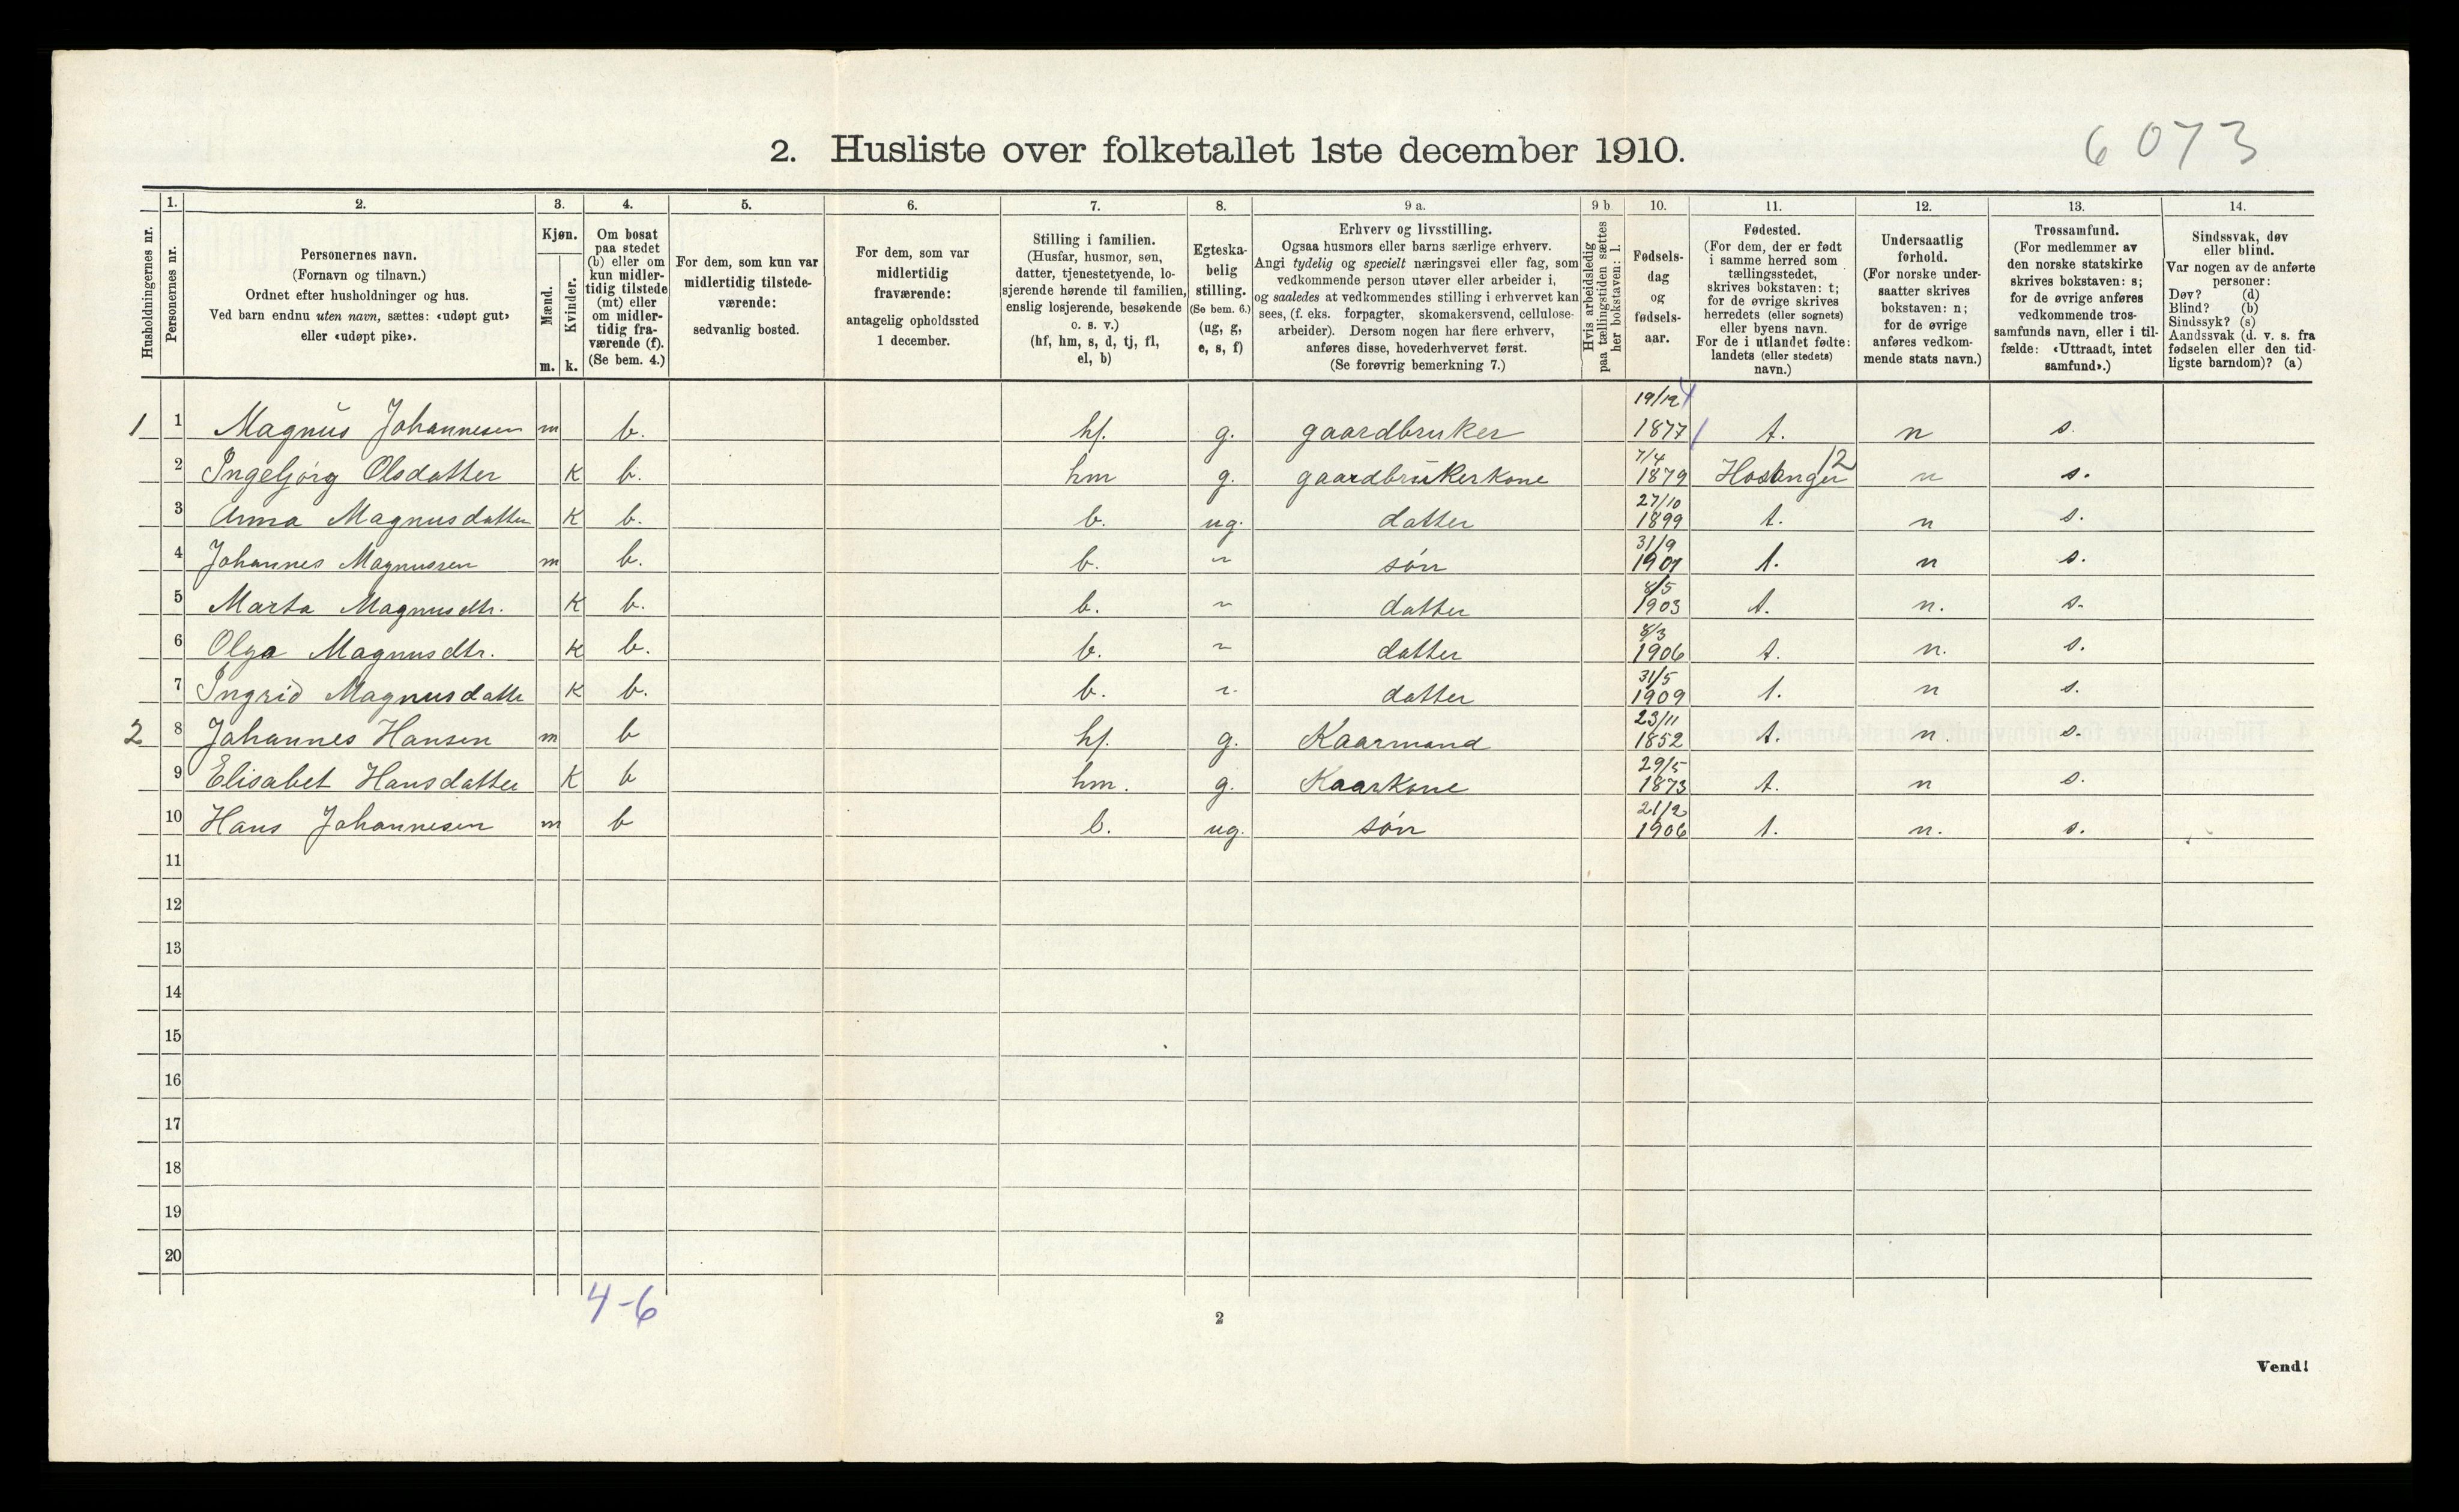 2. Husliste over folketallet 1ste december 1910.
6073
Husholdningernes nr.
1.
Personernes nr.
2.
Personernes navn.
(Fornavn og tilnavn.)
Ordnet efter husholdninger og hus.
Ved barn endnu uten navn, sættes: «udøpt gut»
eller «udøpt pike».
3.
Kjøn.
Mænd.
Kvinder.
m. k.
4.
Om bosat
paa stedet
(b) eller om
kun midler-
tidig tilstede
(mt) eller
om midler-
tidig fra-
værende (f).
(Se bem. 4.)
5.
For dem, som kun var
midlertidig tilstede-
værende:
sedvanlig bosted.
6.
For dem, som var
midlertidig
fraværende:
antagelig opholdssted
1 december.
7.
Stilling i familien.
(Husfar, husmor, søn,
datter, tjenestetyende, lo-
sjerende hørende til familien,
enslig losjerende, besøkende
o. s. v.)
(hf, hm, s, d, tj, fl,
el, b)
8.
Egteska-
belig
stilling.
(Se bem. 6.)
(ug, g,
e, s, f)
9 a.
Erhverv og livsstilling.
Ogsaa husmors eller barns særlige erhverv.
Angi tydelig og specielt næringsvei eller fag, som
vedkommende person utøver eller arbeider i,
og saaledes at vedkommendes stilling i erhvervet kan
sees, (f. eks. forpagter, skomakersvend, cellulose-
arbeider). Dersom nogen har flere erhverv,
anføres disse, hovederhvervet først.
(Se forøvrig bemerkning 7.)
9 b
Hvis arbeidsledig
paa tællingstiden sættes
her bokstaven: l.
10.
Fødsels-
dag
og
fødsels-
aar.
11.
Fødested.
(For dem, der er født
i samme herred som
tællingsstedet,
skrives bokstaven: t;
for de øvrige skrives
herredets (eller sognets)
eller byens navn.
For de i utlandet fødte:
landets (eller stedets)
navn.)
12.
Undersaatlig
forhold.
(For norske under-
saatter skrives
bokstaven: n;
for de øvrige
anføres vedkom-
mende stats navn.)
13.
Trossamfund.
(For medlemmer av
den norske statskirke
skrives bokstaven: s;
for de øvrige anføres
vedkommende tros-
samfunds navn, eller i til-
fælde: «Uttraadt, intet
samfund».)
14.
Sindssvak, døv
eller blind.
Var nogen av de anførte
personer:
Døv? (d)
Blind? (b)
Sindssyk? (s)
Aandssvak (d. v. s. fra
fødselen eller den tid-
ligste barndom)? (a)
1 1 Magnus Johannesen m b. hf. g. gaardbruker 19/12 1877 t. n s.
2 Ingebjørg Olsdatter K b. hm g. gaardbrukerkone 7/4 1879 Hosanger 12 n s.
3 Anna Magnusdatter K b. b. ug. datter 27/10 1899 t. n s.
4 Johannes Magnussen m b. b. " søn 31/9 1901 t. n s.
5 Marta Magnusdtr. K b. b. " datter 8/5 1903 t. n. s.
6 Olga Magnusdtr. K b. b. " datter 8/3 1906 t. n. s.
7 Ingrid Magnusdatte K b. b. " datter 31/5 1909 t. n s.
2 8 Johannes Hansen m b hf. g. Kaarmand 23/11 1852 t. n. s.
9 Elisabet Hansdatter K b hm. g. Kaarkone 29/5 1873 t. n s.
10 Hans Johannesen m b b. ug. søn 21/2 1906 t. n. s.
11
12
13
14
15
16
17
18
19
20
4-6
2
Vend!